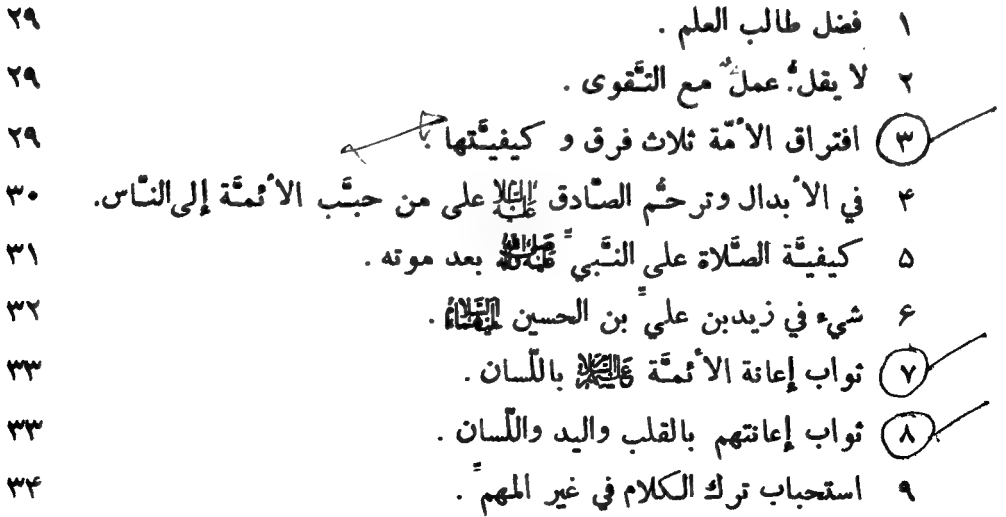 ١ فضل طالب العلم . ٢٩
٢ لا يقلّ عملٌ مع التّقوى . ٢٩
٣ افتراق الأمّة ثلاث فرق و كيفيّتها . ٢٩
۴ في الأبدال وترحّم الصّادق عليه‌السلام على من حبّب الأئمّة إلى النّاس. ٣٠
۵ كيفيّة الصّلاة على النّبيّ صلى الله عليه وآله بعد موته . ٣١
۶ شيء في زيدبن عليّ بن الحسين عليهما السلام . ٣٢
٧ ثواب إعانة الأئمّة عليهم السلام باللّسان . ٣٣
٨ ثواب إعانتهم بالقلب واليد واللّسان . ٣٣
٩ استحباب ترك الكلام في غير المهمّ . ٣۴